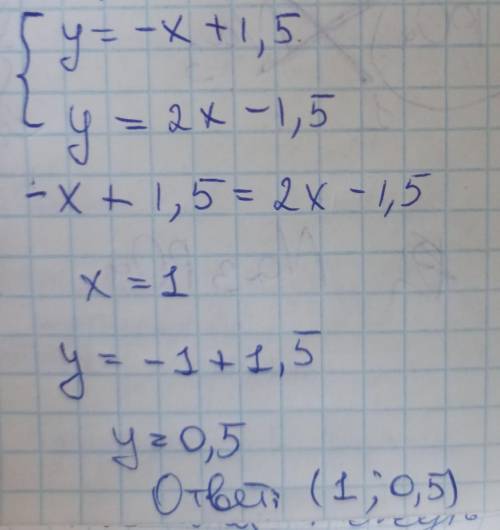 y = -x + 1,5
y = 2x - 1,5
-x + 1,5 = 2x - 1,5
x = 1
y = -1 + 1,5
y = 0,5
Ответ: (1; 0,5)